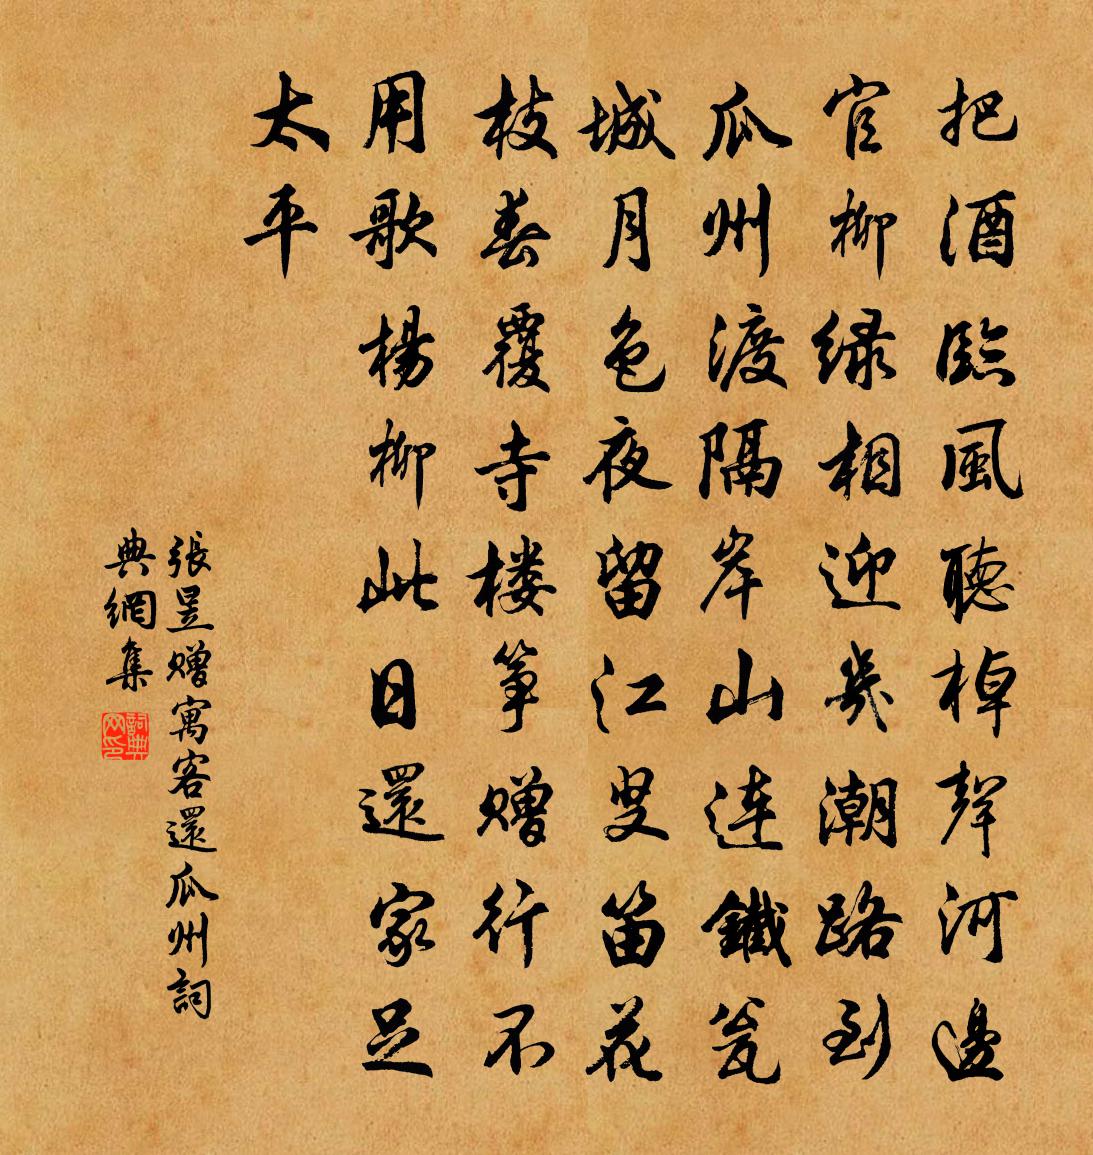 把酒臨風聽棹聲河邊
官柳緑相迎幾潮路到
瓜州渡隔岸山連鐵瓮
城月色夜留江叟笛花
枝春覆寺楼筝贈行不
用歌楊柳此日還家足
太平
張昱贈寓客還瓜州詞
典網集
詞典网印